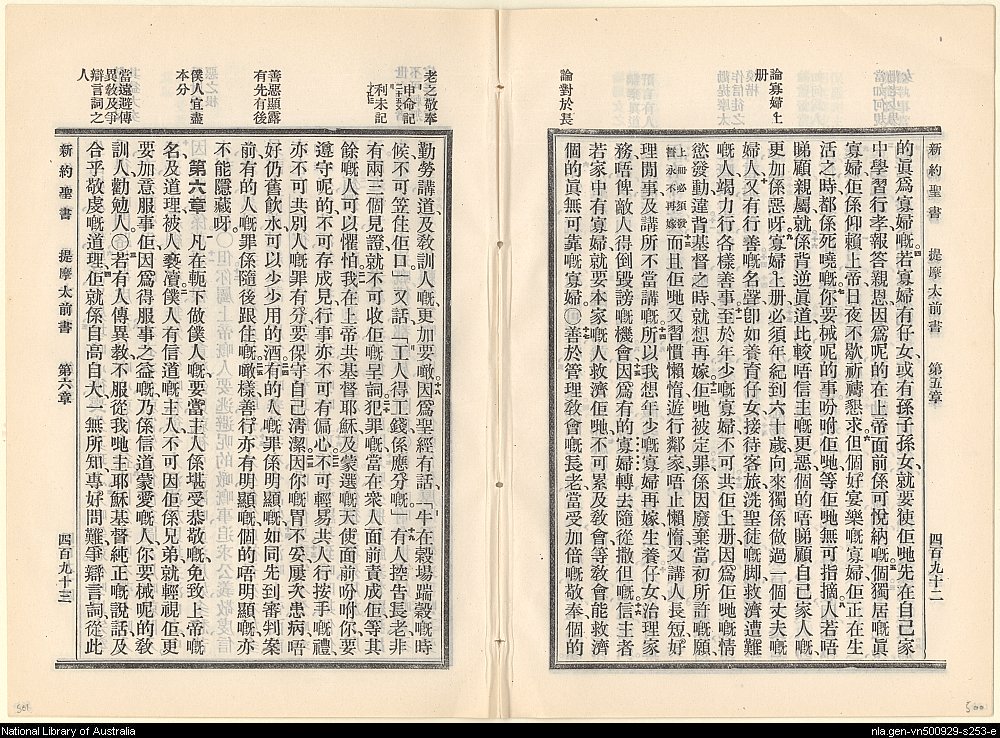 新約聖書　提摩太前書　第五章　四百九十二
的眞爲寡婦嘅若寡婦有仔女或有孫子孫女就要使佢哋先在自己家
中學習行孝報答親恩因爲呢的在上帝面前係可悅納嘅個獨居嘅眞
寡婦佢係仰賴上帝日夜不歇祈禱懇求但個好宴樂嘅寡婦佢正在生
活之時都係死曉嘅你要械呢的事吩咐佢哋等佢哋無可指摘人若唔
睇顧親屬就係背逆眞道比較唔信主嘅更惡個的唔睇顧自己家人嘅
更加係惡呀寡婦上册必須年紀到六十歲向來獨係做過一個丈夫嘅
婦人又有行善嘅名聲卽如善育仔女接待客旅洗聖徒嘅脚救濟遭難
嘅人竭力行各樣善事至於年少嘅寡婦不可共佢上册因爲佢哋嘅情
慾發動違背基督之時就想再嫁佢哋被定罪係因廢棄當初所許嘅願
上册必須發誓永不再嫁而且佢哋又習慣懶惰遊行鄰家唔止懶惰又講人長短好
理閒事及講所不當講嘅所以我想年少嘅寡婦再嫁生養仔女治理家
務唔俾敵人得倒毀謗嘅機會因爲有的寡婦轉去隨從撒但嘅信主者
若家中有寡婦就要本家嘅人救濟佢哋不可累及敎會等敎會能救濟
個的眞無可靠嘅寡婦○善於管理敎會嘅長老當受加倍嘅敬奉個的
論寡婦上册
論對於長
老之敬奉
申命記
利未記
善惡顯露有先有後
僕人宜盡本分
當遠避傳異敎及爭辯言詞之人
勤勞講道及敎訓人嘅更加要噉因爲聖經有話牛在穀場踹穀嘅時
候不可笠住佢口又話工人得工錢係應分嘅有人控告長老非
有兩三個見證就不可收佢嘅呈詞犯罪嘅當在衆人面前責成佢等其
餘嘅人可以懼怕我在上帝共基督耶穌及蒙選嘅天使面前吩咐你要
遵守呢的不可存成見行事亦不可有偏心不可輕易共人行按手嘅禮
亦不可共別人嘅罪有分要保守自己清潔因你嘅胃不妥屢次患病唔
好仍舊飮水可以少少用的酒有的人嘅罪係明顯嘅如同先到審判案
前有的人嘅罪係隨後跟住嘅噉樣善行亦有明顯嘅個的唔明顯嘅亦
不能隱藏呀
第六章　凡在軛下做僕人嘅要當主人係堪受恭敬嘅免致上帝嘅
名及道理被人褻瀆僕人有信道嘅主人不可因佢係兄弟就輕視佢更
要加意服事佢因爲得服事之益嘅乃係信道蒙愛嘅人你要械呢的敎
訓人勸勉人○若有人傳異敎不服從我哋主耶穌基督純正嘅說話及
合乎敬虔嘅道理佢就係自高自大一無所知專好問難爭辯言詞從此
新約聖書　提摩太前書　第六章　四百九十三
501
500
National Library of Australia
nla.gen-vn500929-s253-e